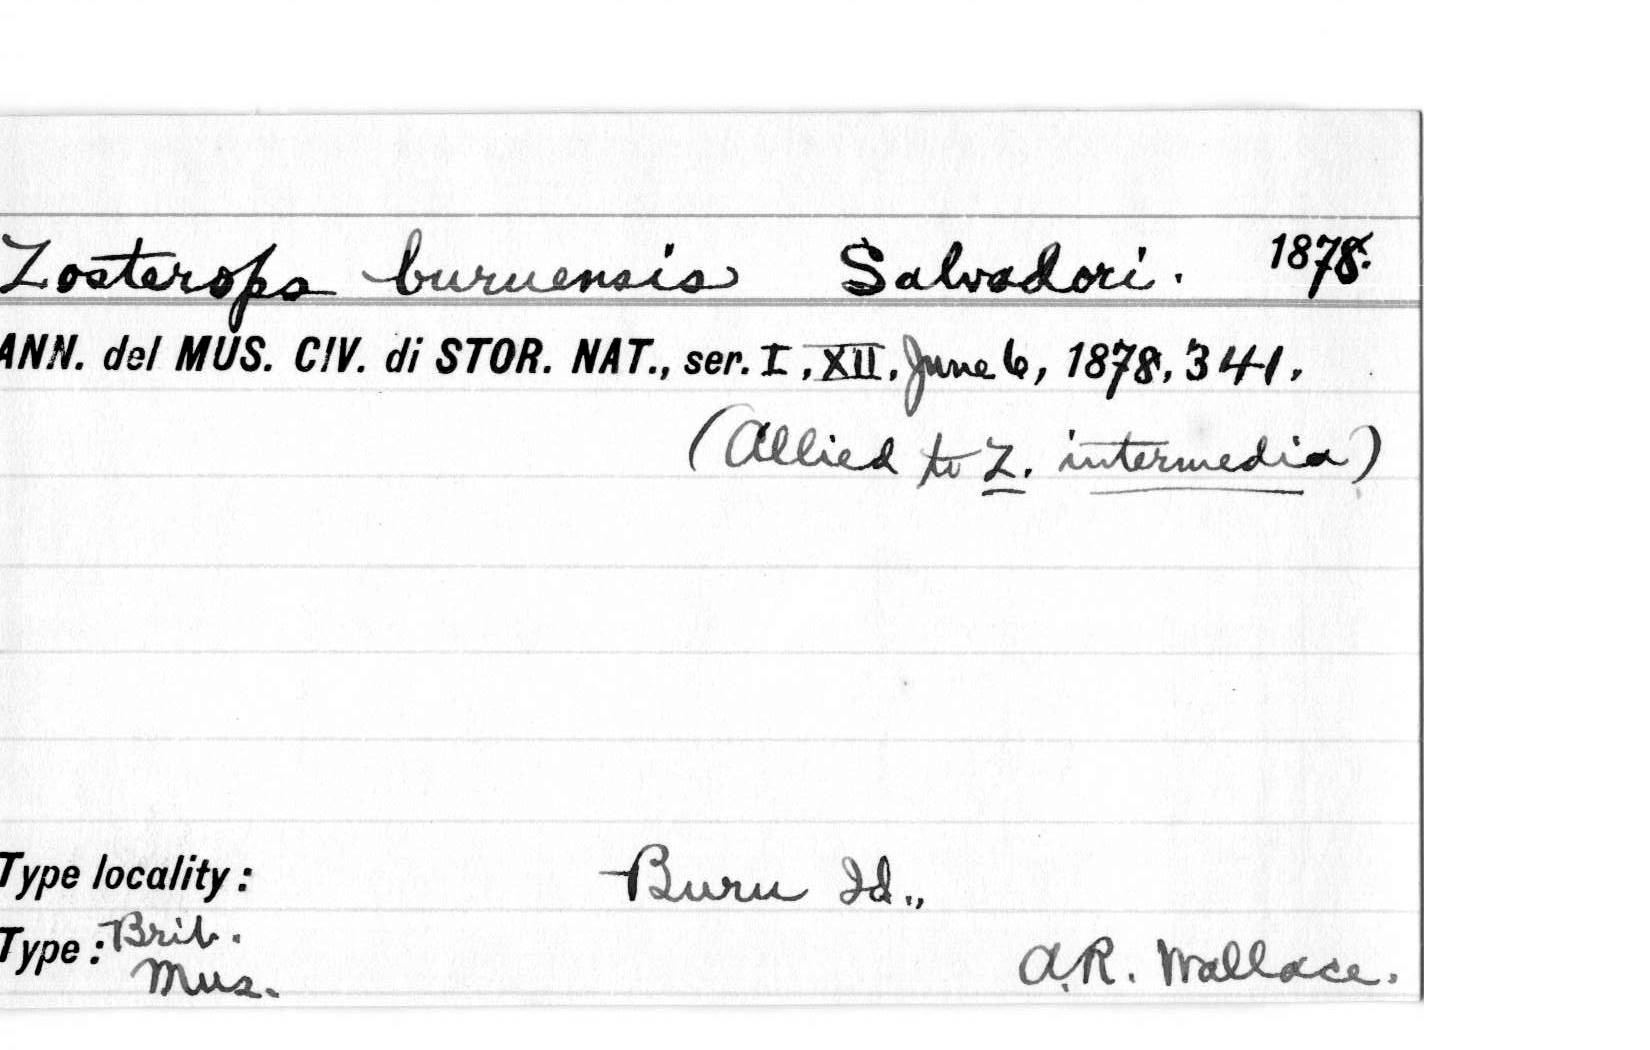 Zosterops buruensis Salvadori. 1878.
ANN. del MUS. CIV. di STOR. NAT., ser. I, XII, June 6, 1878, 341.
(Allied to Z. intermedia)
Type locality: Buru Id.,
Type: Brit.
Mus. A.R. Wallace.